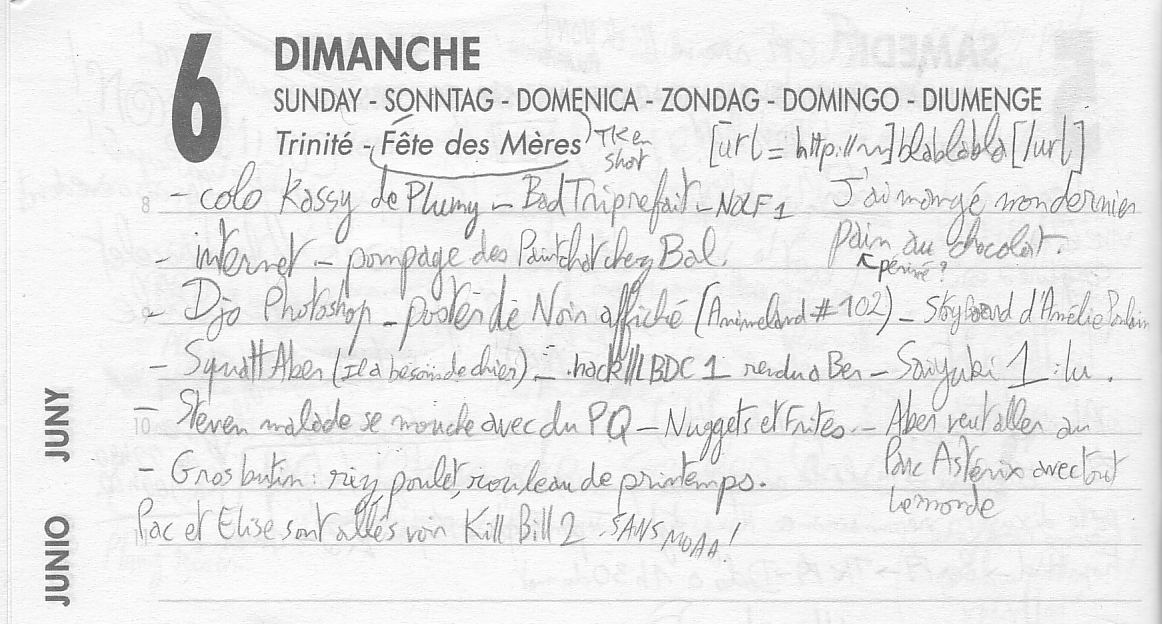 6 DIMANCHE
SUNDAY - SONNTAG - DOMENICA - ZONDAG - DOMINGO - DIUMENGE
Trinité - Fête des Mères
Tken short
[url = http://~]blablabla[/url]
8 - colo Kassy de Plumy - Bad Trip refait - NOLF 1
J'ai mangé mon dernier
pain au chocolat.
périmé ?
- internet - pompage des Paintchat chez Bal.
- Djo Photoshop - poster de Noir affiché (Animeland #102) - Storyboard d'Amélie Poulain
- Squatt Aber (Il a besoin de chier) - .hack//LBDC 1 rendu a Ben - Saiyuki 1 : lu.
10 - Steven malade se mouche avec du PQ - Nuggets et Frites. - Aber veut aller au
Parc Astérix avec tout
le monde
- Gros butin : riz, poulet, rouleau de printemps.
Pac et Elise sont allés voir Kill Bill 2 SANS MOAA !
JUNIO JUNY